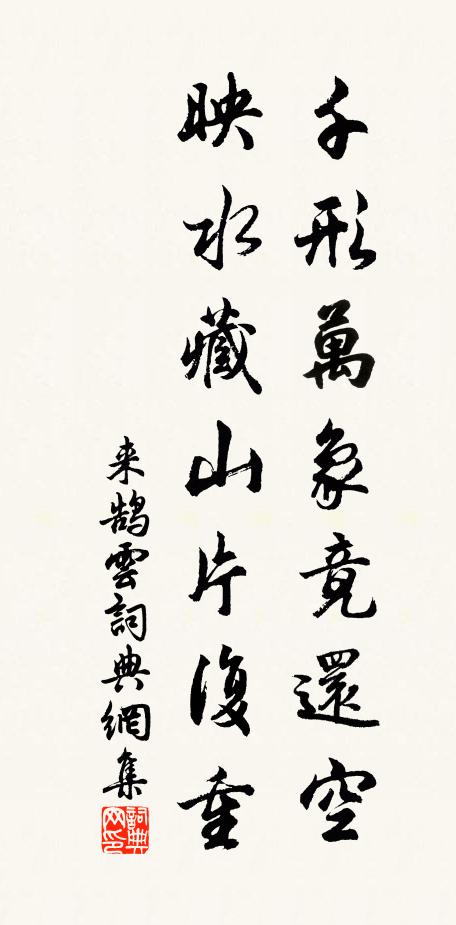 千形萬象竟還空
映水藏山片復重
来鹄雲詞典網集
詞典网印